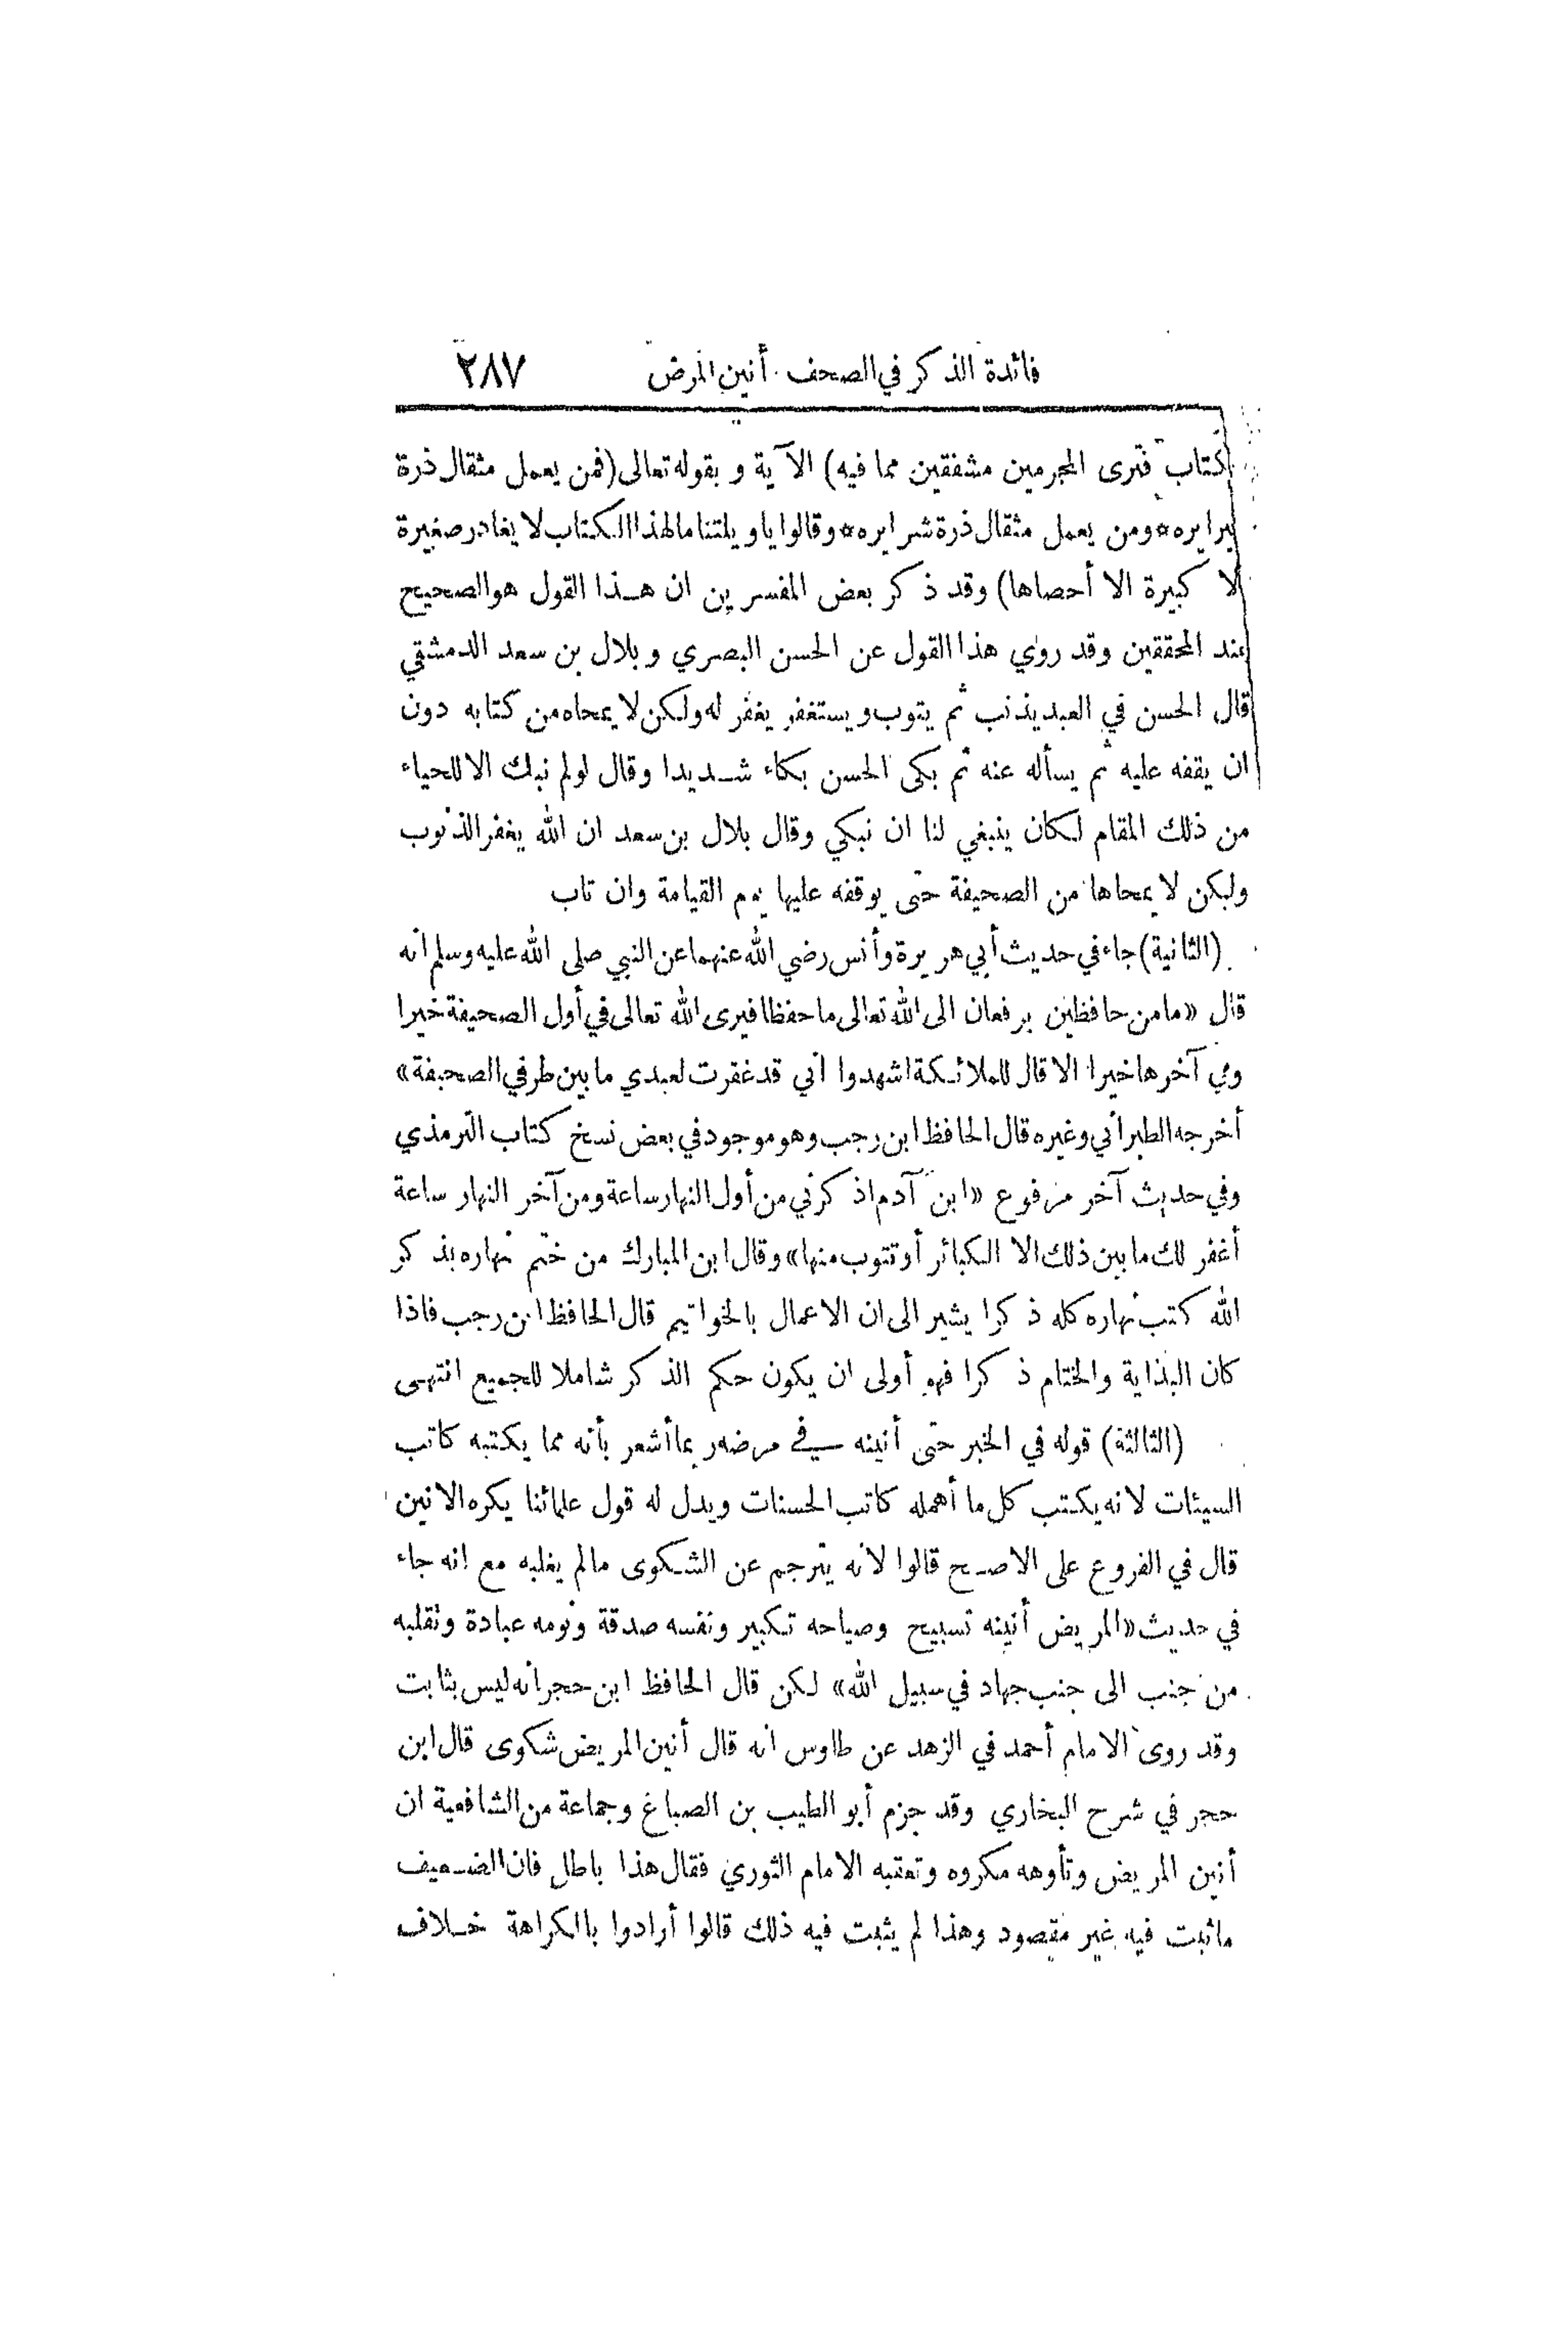 فائدة الذكر في الصحف . أنين المرض ٢٨٧
الكتاب فترى المجرمين مشفقين مما فيه) الآية و بقوله تعالى (فمن يعمل مثقال ذرة
خيرا يره * ومن يعمل مثقال ذرة شرا يره * وقالوا يا ويلتنا ما لهذا الكتاب لا يغادر صغيرة
ولا كبيرة الا أحصاها) وقد ذكر بعض المفسرين ان هذا القول هو الصحيح
عند المحققين وقد روي هذا القول عن الحسن البصري و بلال بن سعد الدمشقي
قال الحسن في العبد يذنب ثم يتوب و يستغفر يغفر له ولكن لا يمحاه من كتابه دون
ان يقفه عليه ثم يسأله عنه ثم بكى الحسن بكاء شديدا وقال لو لم نبك الا للحياء
من ذلك المقام لكان ينبغي لنا ان نبكي وقال بلال بن سعد ان الله يغفر الذنوب
ولكن لا يمحاها من الصحيفة حتى يوقفه عليها يوم القيامة وان تاب
(الثانية) جاء في حديث أبي هريرة وأنس رضي الله عنهما عن النبي صلى الله عليه وسلم انه
قال «ما من حافظين يرفعان الى الله تعالى ما حفظا فيرى الله تعالى في أول الصحيفة خيرا
وفي آخرها خيرا الا قال للملائكة اشهدوا اني قد غفرت لعبدي ما بين طرفي الصحيفة»
أخرجه الطبراني وغيره قال الحافظ ابن رجب وهو موجود في بعض نسخ كتاب الترمذي
وفي حديث آخر مرفوع «ابن آدم اذكرني من أول النهار ساعة ومن آخر النهار ساعة
أغفر لك ما بين ذلك الا الكبائر أو تتوب منها» وقال ابن المبارك من ختم نهاره بذكر
الله كتب نهاره كله ذكرا يشير الى ان الاعمال بالخواتيم قال الحافظ ابن رجب فاذا
كان البداية والختام ذكرا فهو أولى ان يكون حكم الذكر شاملا للجميع انتهى
(الثالثة) قوله في الخبر حتى أنينه في مرضه ربما أشعر بأنه مما يكتبه كاتب
السيئات لانه يكتب كل ما أهمله كاتب الحسنات ويدل له قول علمائنا يكره الانين
قال في الفروع على الاصح قالوا لانه يترجم عن الشكوى مالم يغلبه مع انه جاء
في حديث «المريض أنينه تسبيح وصياحه تكبير ونفسه صدقة ونومه عبادة وتقلبه
من جنب الى جنب جهاد في سبيل الله» لكن قال الحافظ ابن حجر انه ليس بثابت
وقد روى الامام أحمد في الزهد عن طاوس انه قال أنين المريض شكوى قال ابن
حجر في شرح البخاري وقد جزم أبو الطيب بن الصباغ وجماعة من الشافعية ان
أنين المريض وتأوهه مكروه وتعقبه الامام الثوري فقال هذا باطل فان الضعيف
ما ثبت فيه غير مقصود وهذا لم يثبت فيه ذلك قالوا أرادوا بالكراهة خلاف